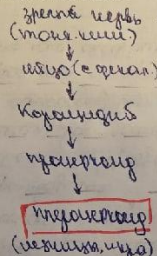 зрелый червь
(тонк. киш)
яйцо (с фекал.)
Корацидий
процеркоид
плероцеркоид
(мышцы, икра)